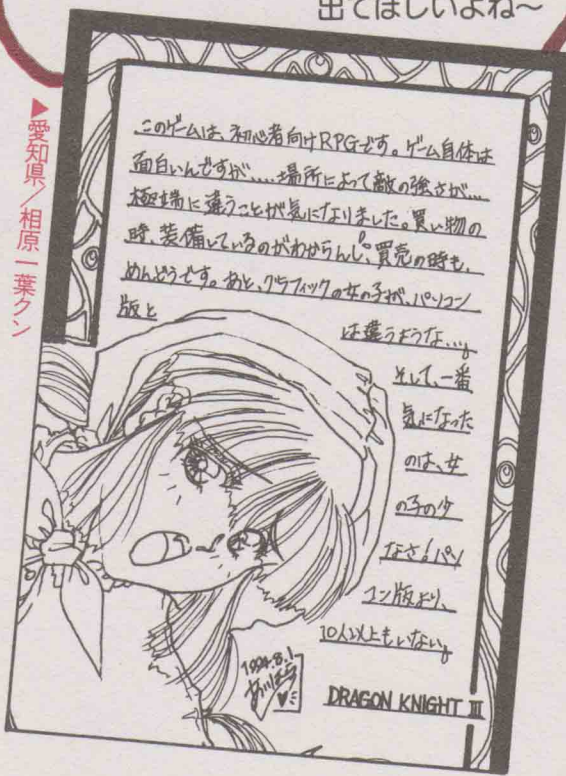 出てほしいよね〜
▶愛知県／相原一葉クン
このゲームは、初心者向けRPGです。ゲーム自体は
面白いんですが....場所によって敵の強さが...
極端に違うことが気になりました。買い物の
時、装備しているのがわからんし、買売の時も、
めんどうです。あと、グラフィックの女の子が、パソコン
版と
は違うような...。
そして、一番
気になった
のは、女
の子の少
なさ!パソ
コン版より、
10人以上もいない。
1994.8.1
あいはら
DRAGON KNIGHT III